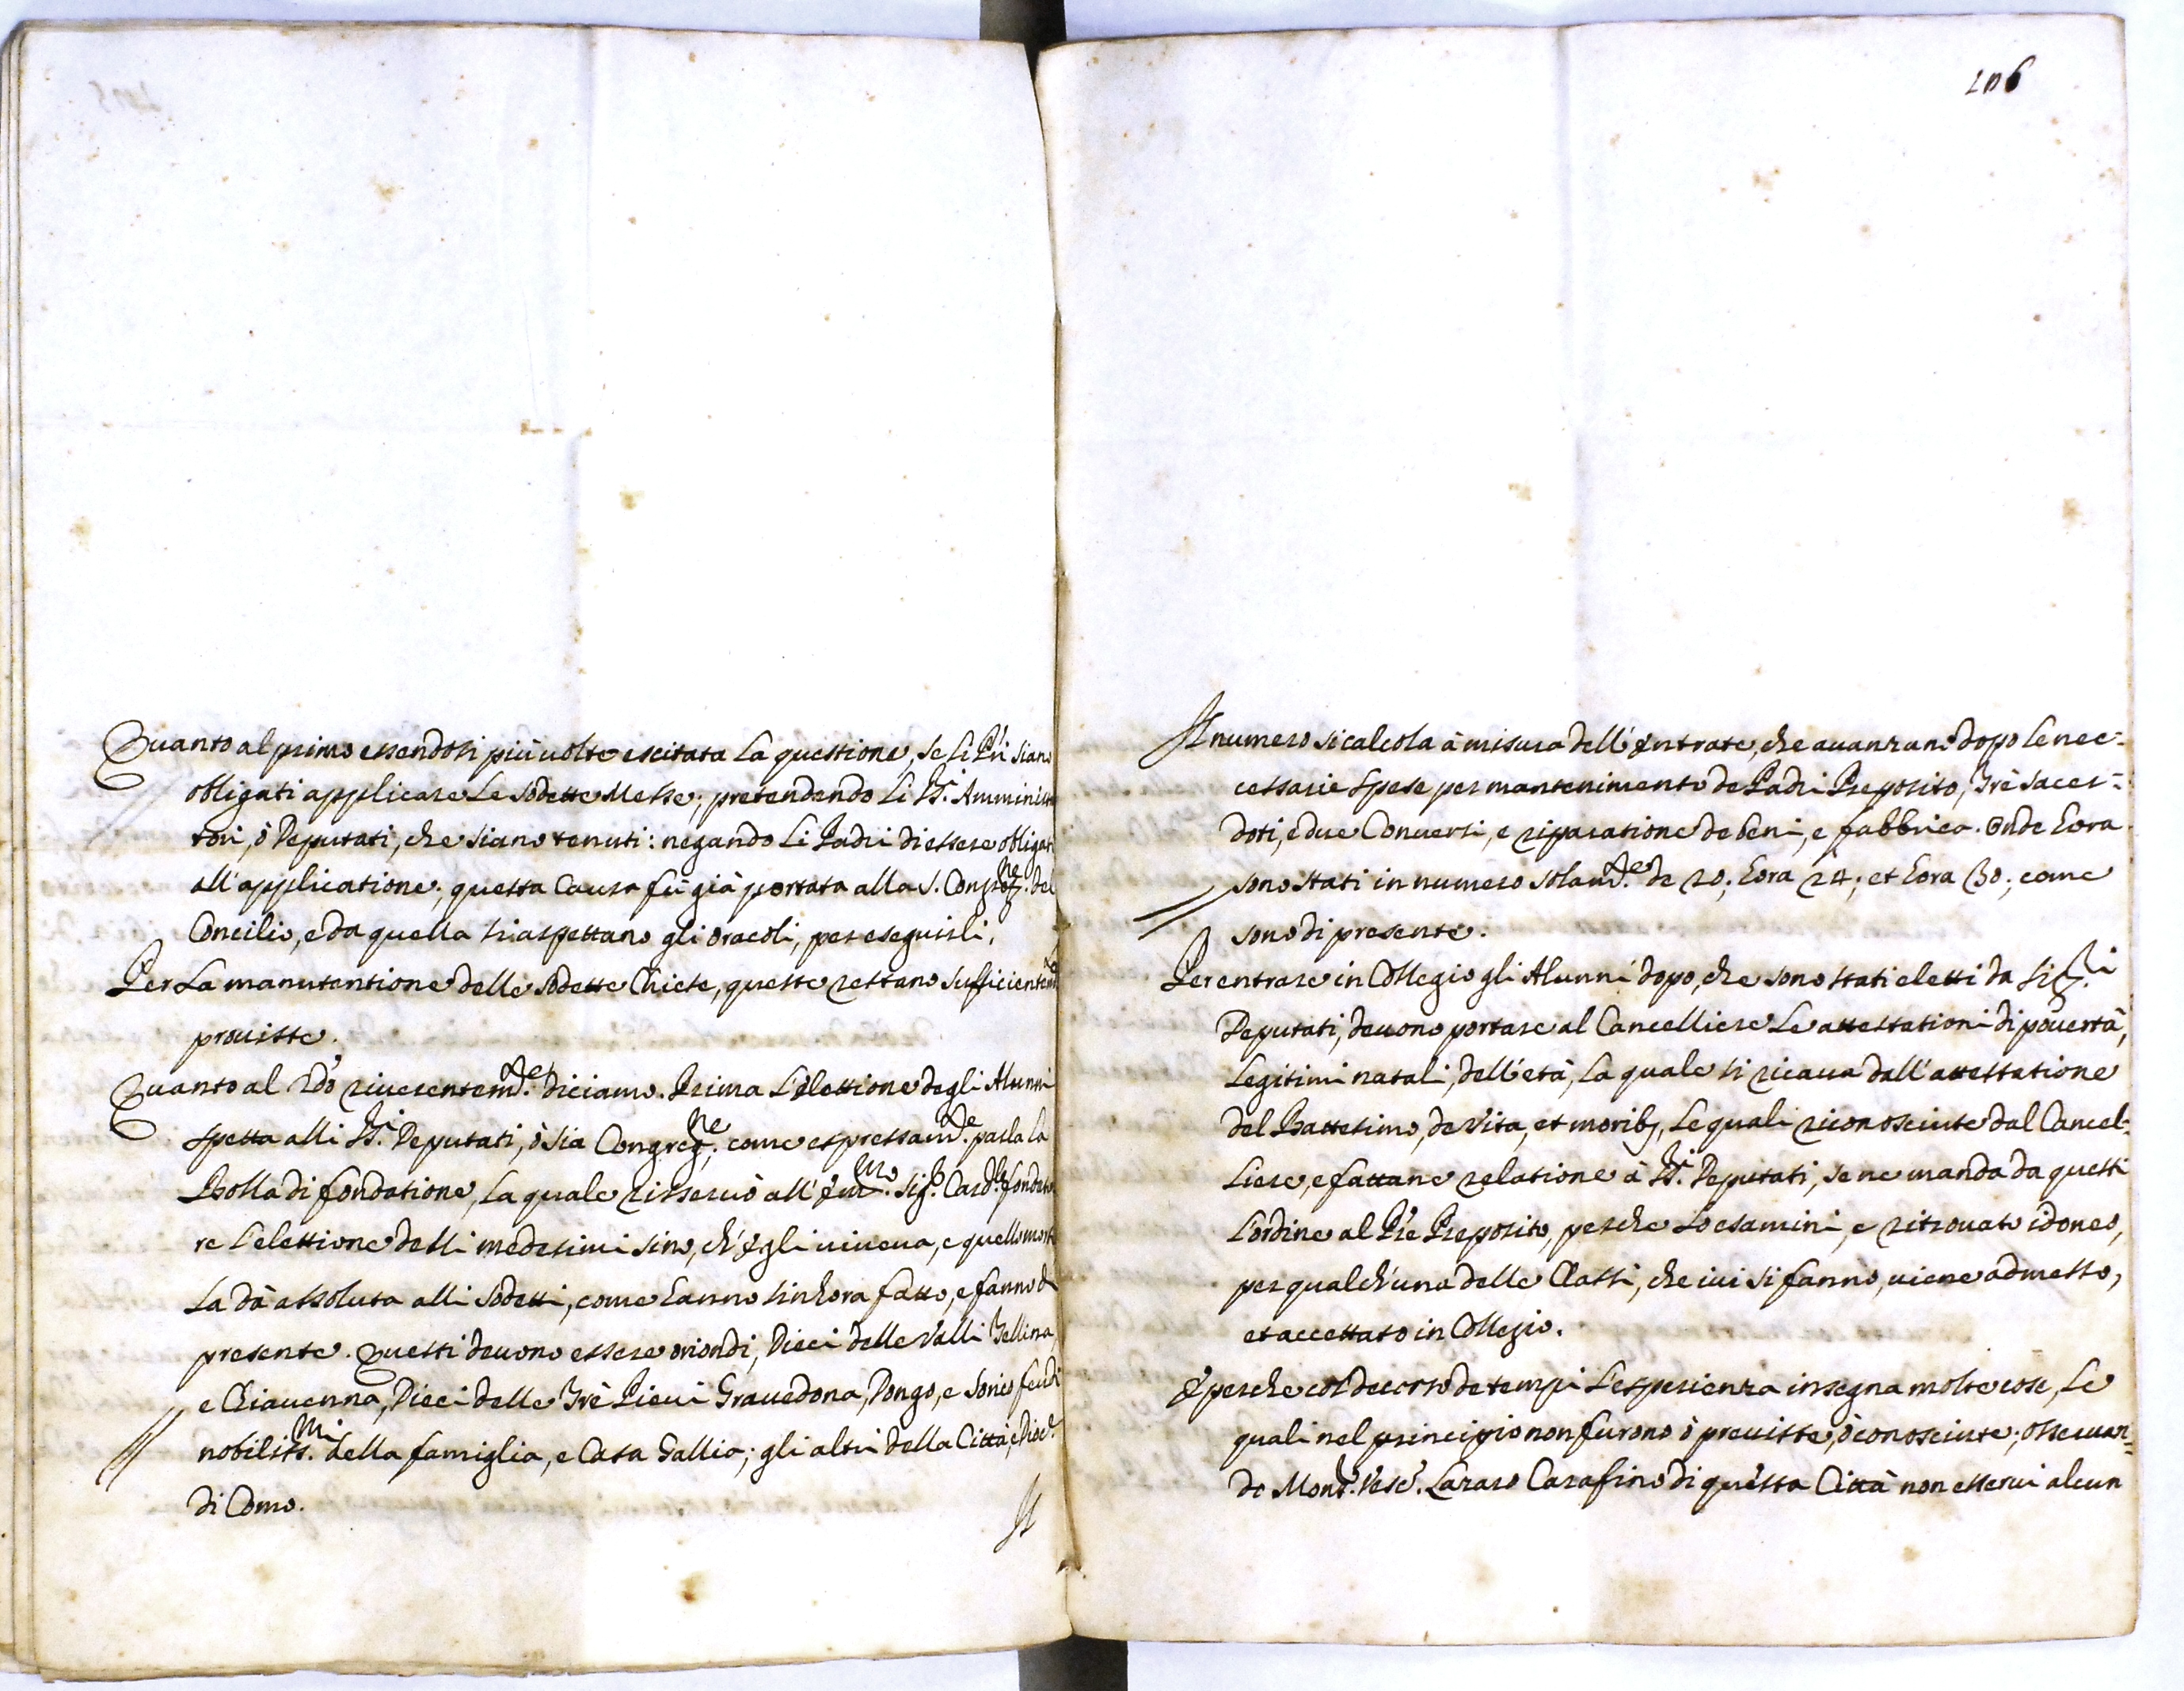 Quanto al primo essendosi più uolte escitata la questione, se li PP.ri siano
obligati applicare le sodette Messe; pretendendo li SS.i Amminist
tori, ò Deputati, che siano tenuti: negando li Padri di essere obligat
all'applicatione; questa causa fù già portata alla S. Cong.ne del
Concilio, e da quella si aspettano gli oracoli, per eseguirli.
Per la manutentione delle sodette Chiese, queste restano sufficientem.te
prouiste.
Quanto al 2do riuerentem.te diciamo. Prima l'elettione degli Alunni
spetta alli SS.i Deputati, ò sia Congreg.ne; come espressam.te parla la
Bolla di fondatione, la quale risseruò all'Em.mo Sig.r Card.le fondato
re l'elettione delli medesimi sino, ch'egli uiueua, e quello morto
la dà assoluta alli sodetti, come hanno sin hora fatto, e fanno di
presente. Questi deuono essere oriondi, Dieci delle Valli Tellina,
e Chiauenna, Dieci delle Trè Pieui Grauedona, Dongo, e Sorico feudi
nobiliss.mi della famiglia, e Casa Gallio; gli altri della Città, e Dioc.
di Como.
Il
106
Il numero si calcola à misura dell'entrate, che auanzano dopo le nec=
cessarie spese per mantenimento de Padri Preposito, Trè sacer=
doti, e due Conuersi, e riparatione de beni, e fabbrica. Onde hora
sono stati in numero solam.te de 20; hora 24; et hora 30; come
sono di presente.
Per entrare in Collegio gli Alunni dopo, che sono stati eletti da li SS.ri
Deputati, deuono portare al Cancelliere le attestationi di pouertà,
legitimi natali, dell'età, la quale si ricaua dall'attestatione
del Battesimo, de vita, et morib9, le quali riconosciute dal Cancel=
liere, e fattane relatione à SS.i Deputati, se ne manda da questi
l'ordine al Pre Preposito, perche lo esamini, e ritrouato idoneo,
per qualch'una delle Classi, che iui si fanno, uiene admesso,
et accettato in Collegio.
E perche col decorso de tempi l'esperienza insegna molte cose, le
quali nel principio non furono ò preuiste, ò conosciute; osseruan=
do Mons.r Vesc. Lazaro Carafino di questa Città non esserui alcun